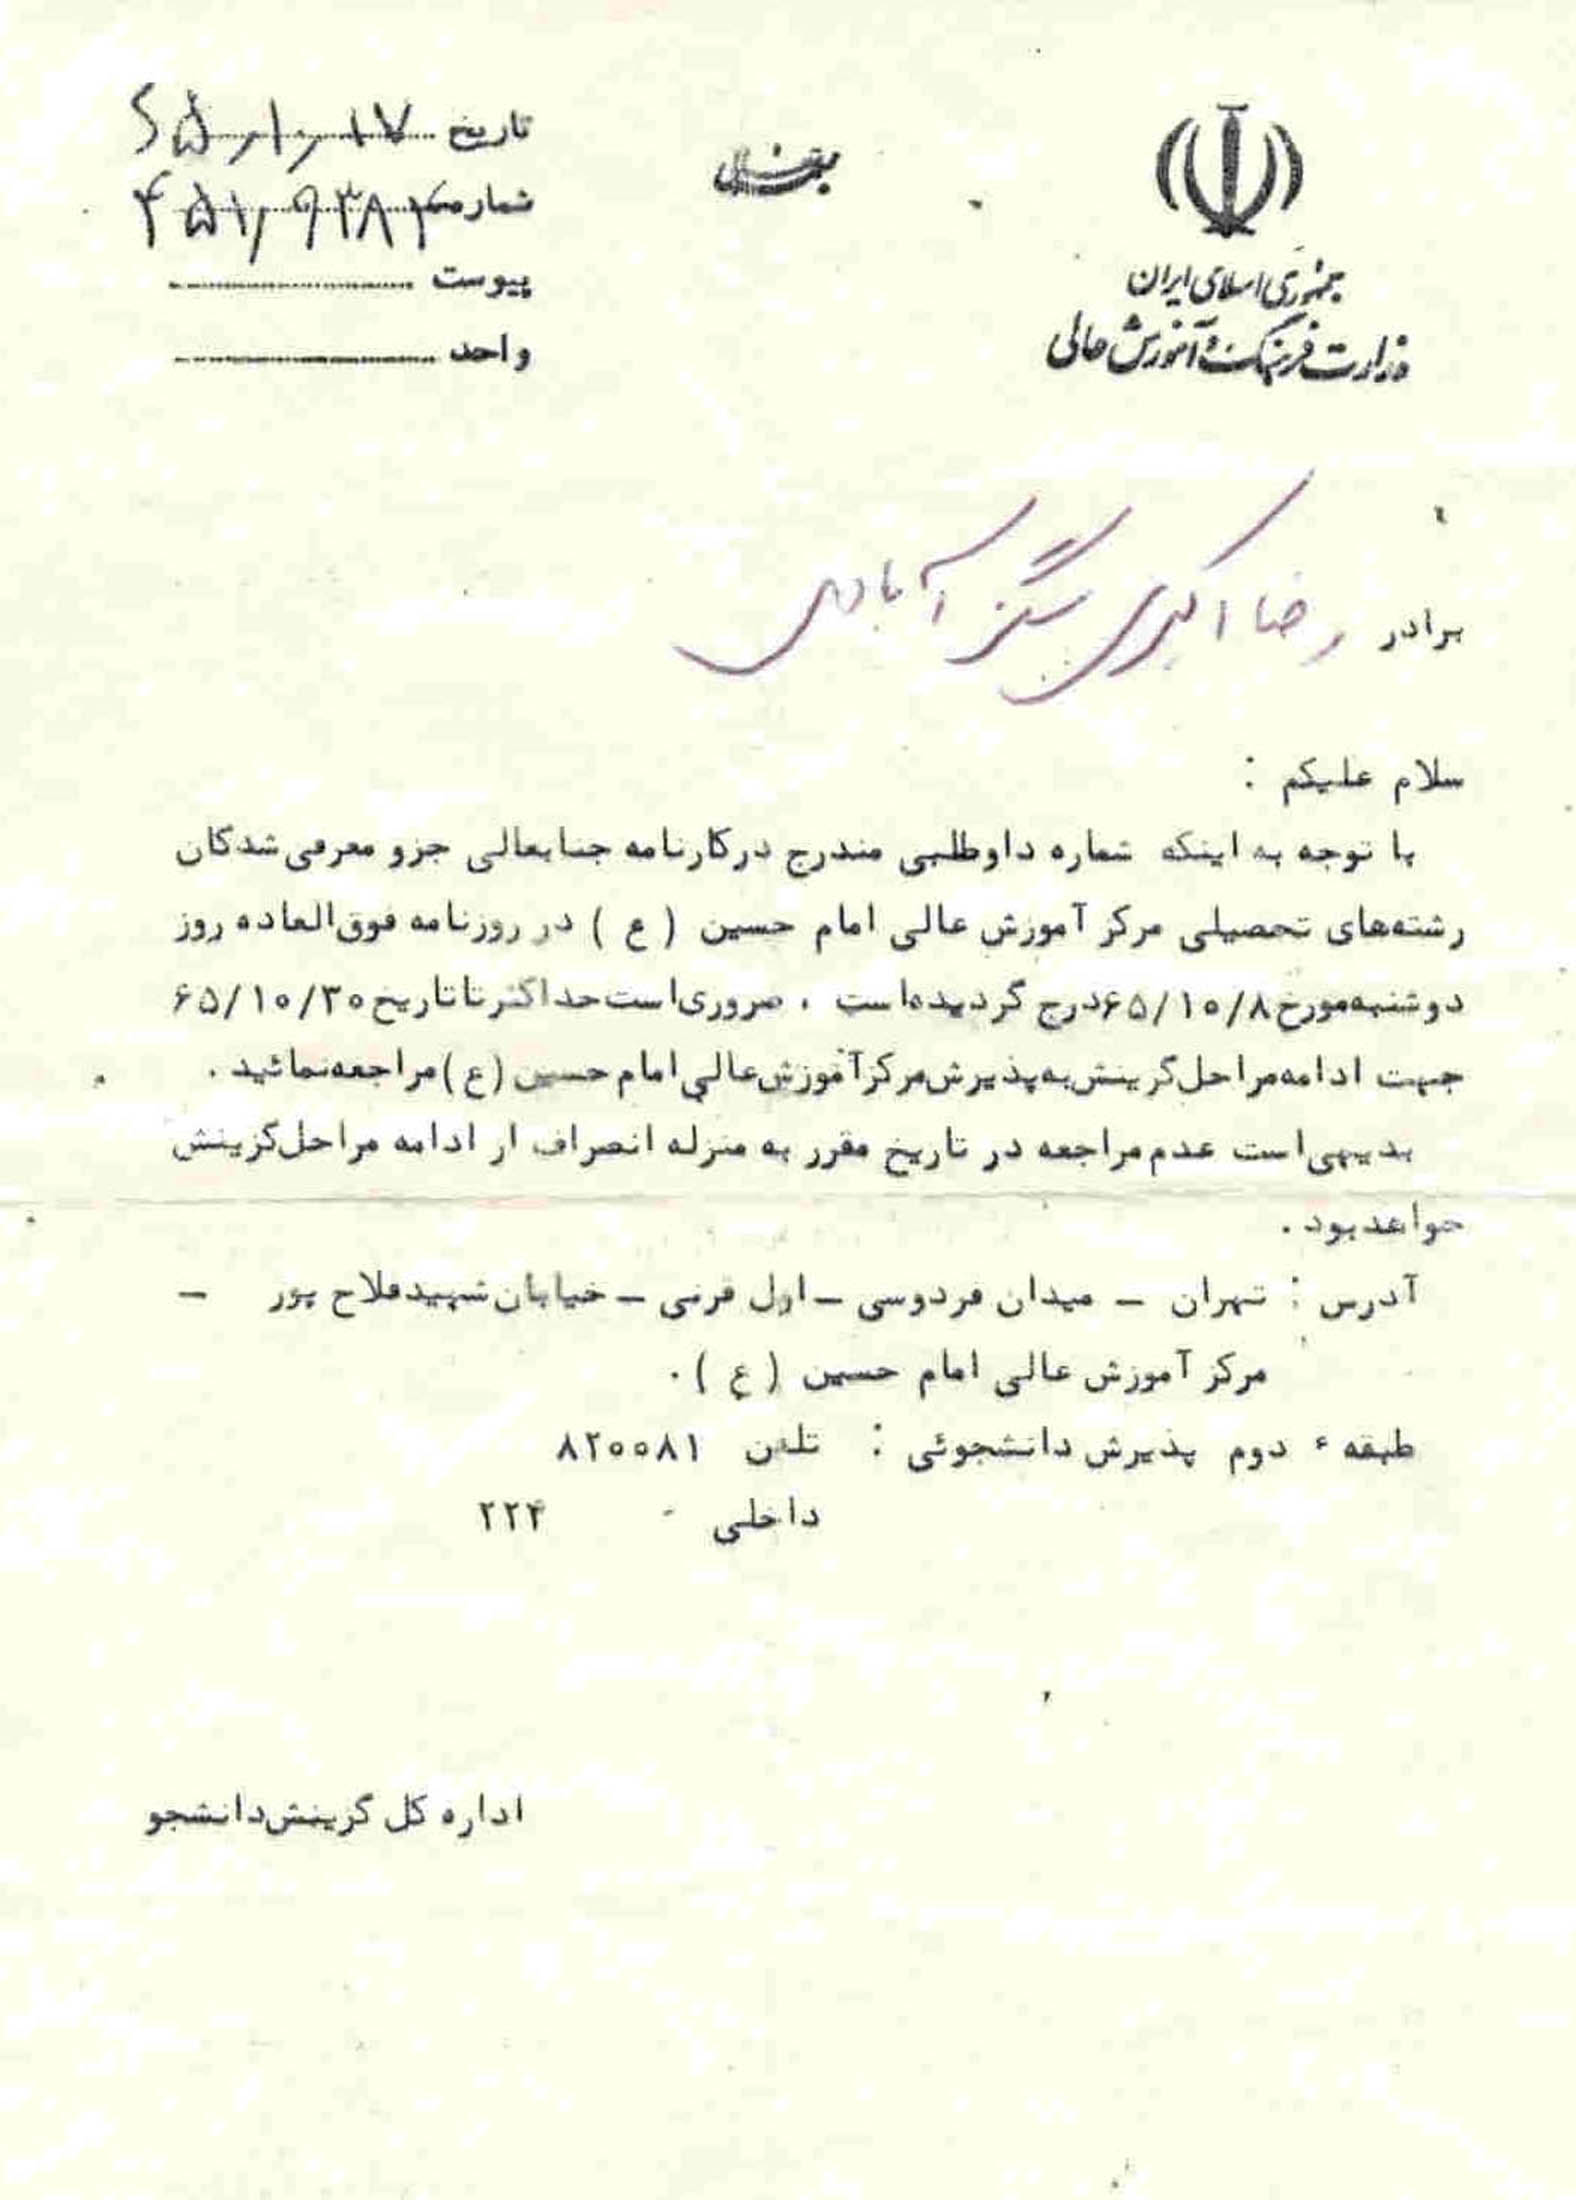 بسمه تعالی
جمهوری اسلامی ایران
وزارت فرهنگ و آموزش عالی
تاریخ ۶۵/۱۰/۱۷
شماره ۴۵۱/۹۳۸۲
پیوست
واحد
برادر رضا اکبری سگز آبادی
سلام علیکم :
با توجه به اینکه شماره داوطلبی مندرج در کارنامه جنابعالی جزو معرفی شدگان
رشته‌های تحصیلی مرکز آموزش عالی امام حسین ( ع ) در روزنامه فوق‌العاده روز
دوشنبه مورخ ۶۵/۱۰/۸ درج گردیده است . ضروری است حداکثر تا تاریخ ۶۵/۱۰/۳۰
جهت ادامه مراحل گزینش به پذیرش مرکز آموزش عالی امام حسین (ع) مراجعه نمائید .
بدیهی است عدم مراجعه در تاریخ مقرر به منزله انصراف از ادامه مراحل گزینش
خواهد بود .
آدرس : تهران - میدان فردوسی - اول قرنی - خیابان شهید فلاح پور -
مرکز آموزش عالی امام حسین ( ع ) .
طبقه ء دوم پذیرش دانشجوئی : تلفن ۸۲۰۰۸۱
داخلی ۲۲۴
اداره کل گزینش دانشجو